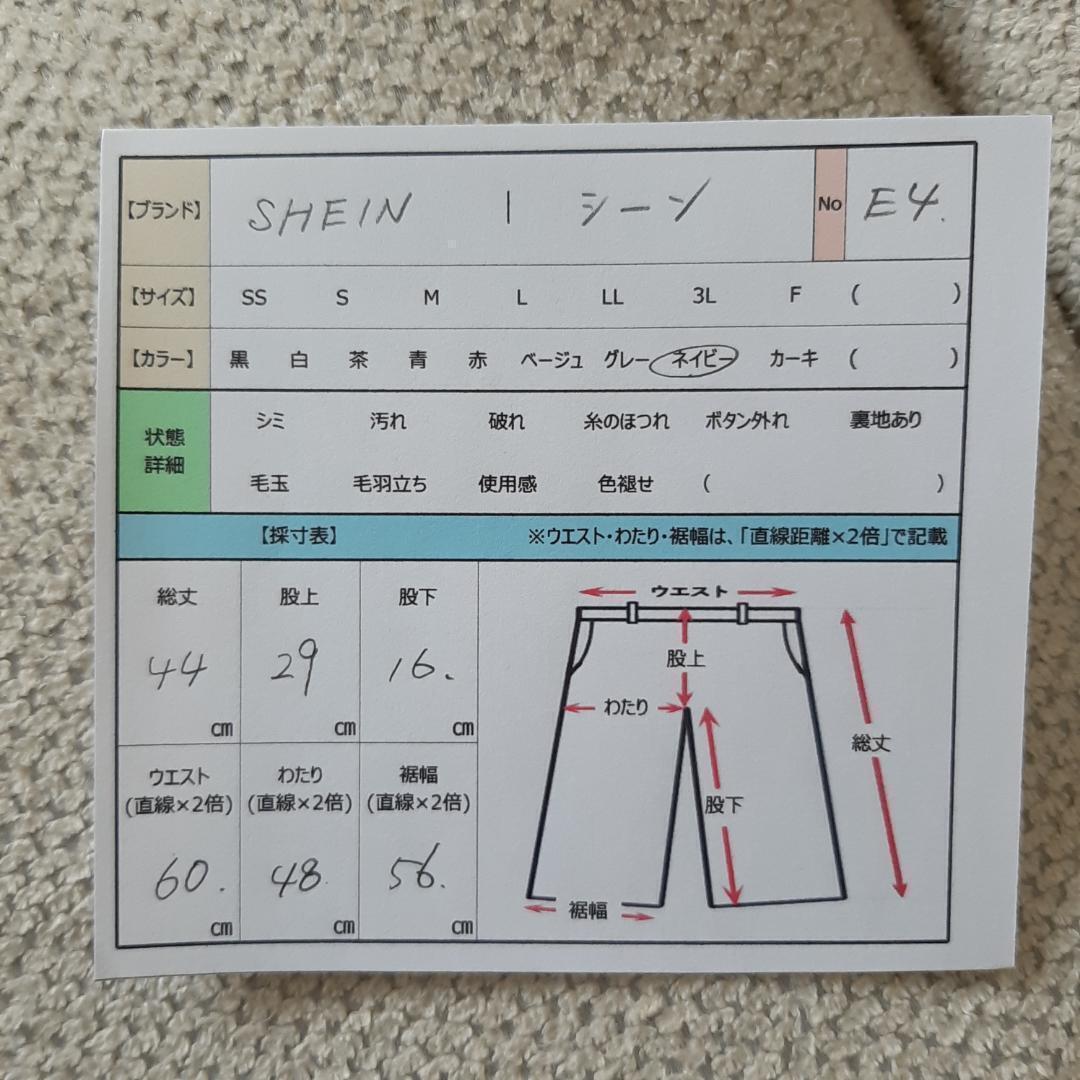 【ブランド】 SHEIN | シーン No E4.
【サイズ】 SS S M L LL 3L F ( )
【カラー】 黒 白 茶 青 赤 ベージュ グレー ネイビー カーキ ( )
状態
詳細
シミ 汚れ 破れ 糸のほつれ ボタン外れ 裏地あり
毛玉 毛羽立ち 使用感 色褪せ ( )
【採寸表】 ※ウエスト・わたり・裾幅は、「直線距離×2倍」で記載
総丈 股上 股下
44 29 16.
cm cm cm
ウエスト わたり 裾幅
(直線×2倍) (直線×2倍) (直線×2倍)
60. 48 56.
cm cm cm
ウエスト
股上
わたり
総丈
股下
裾幅